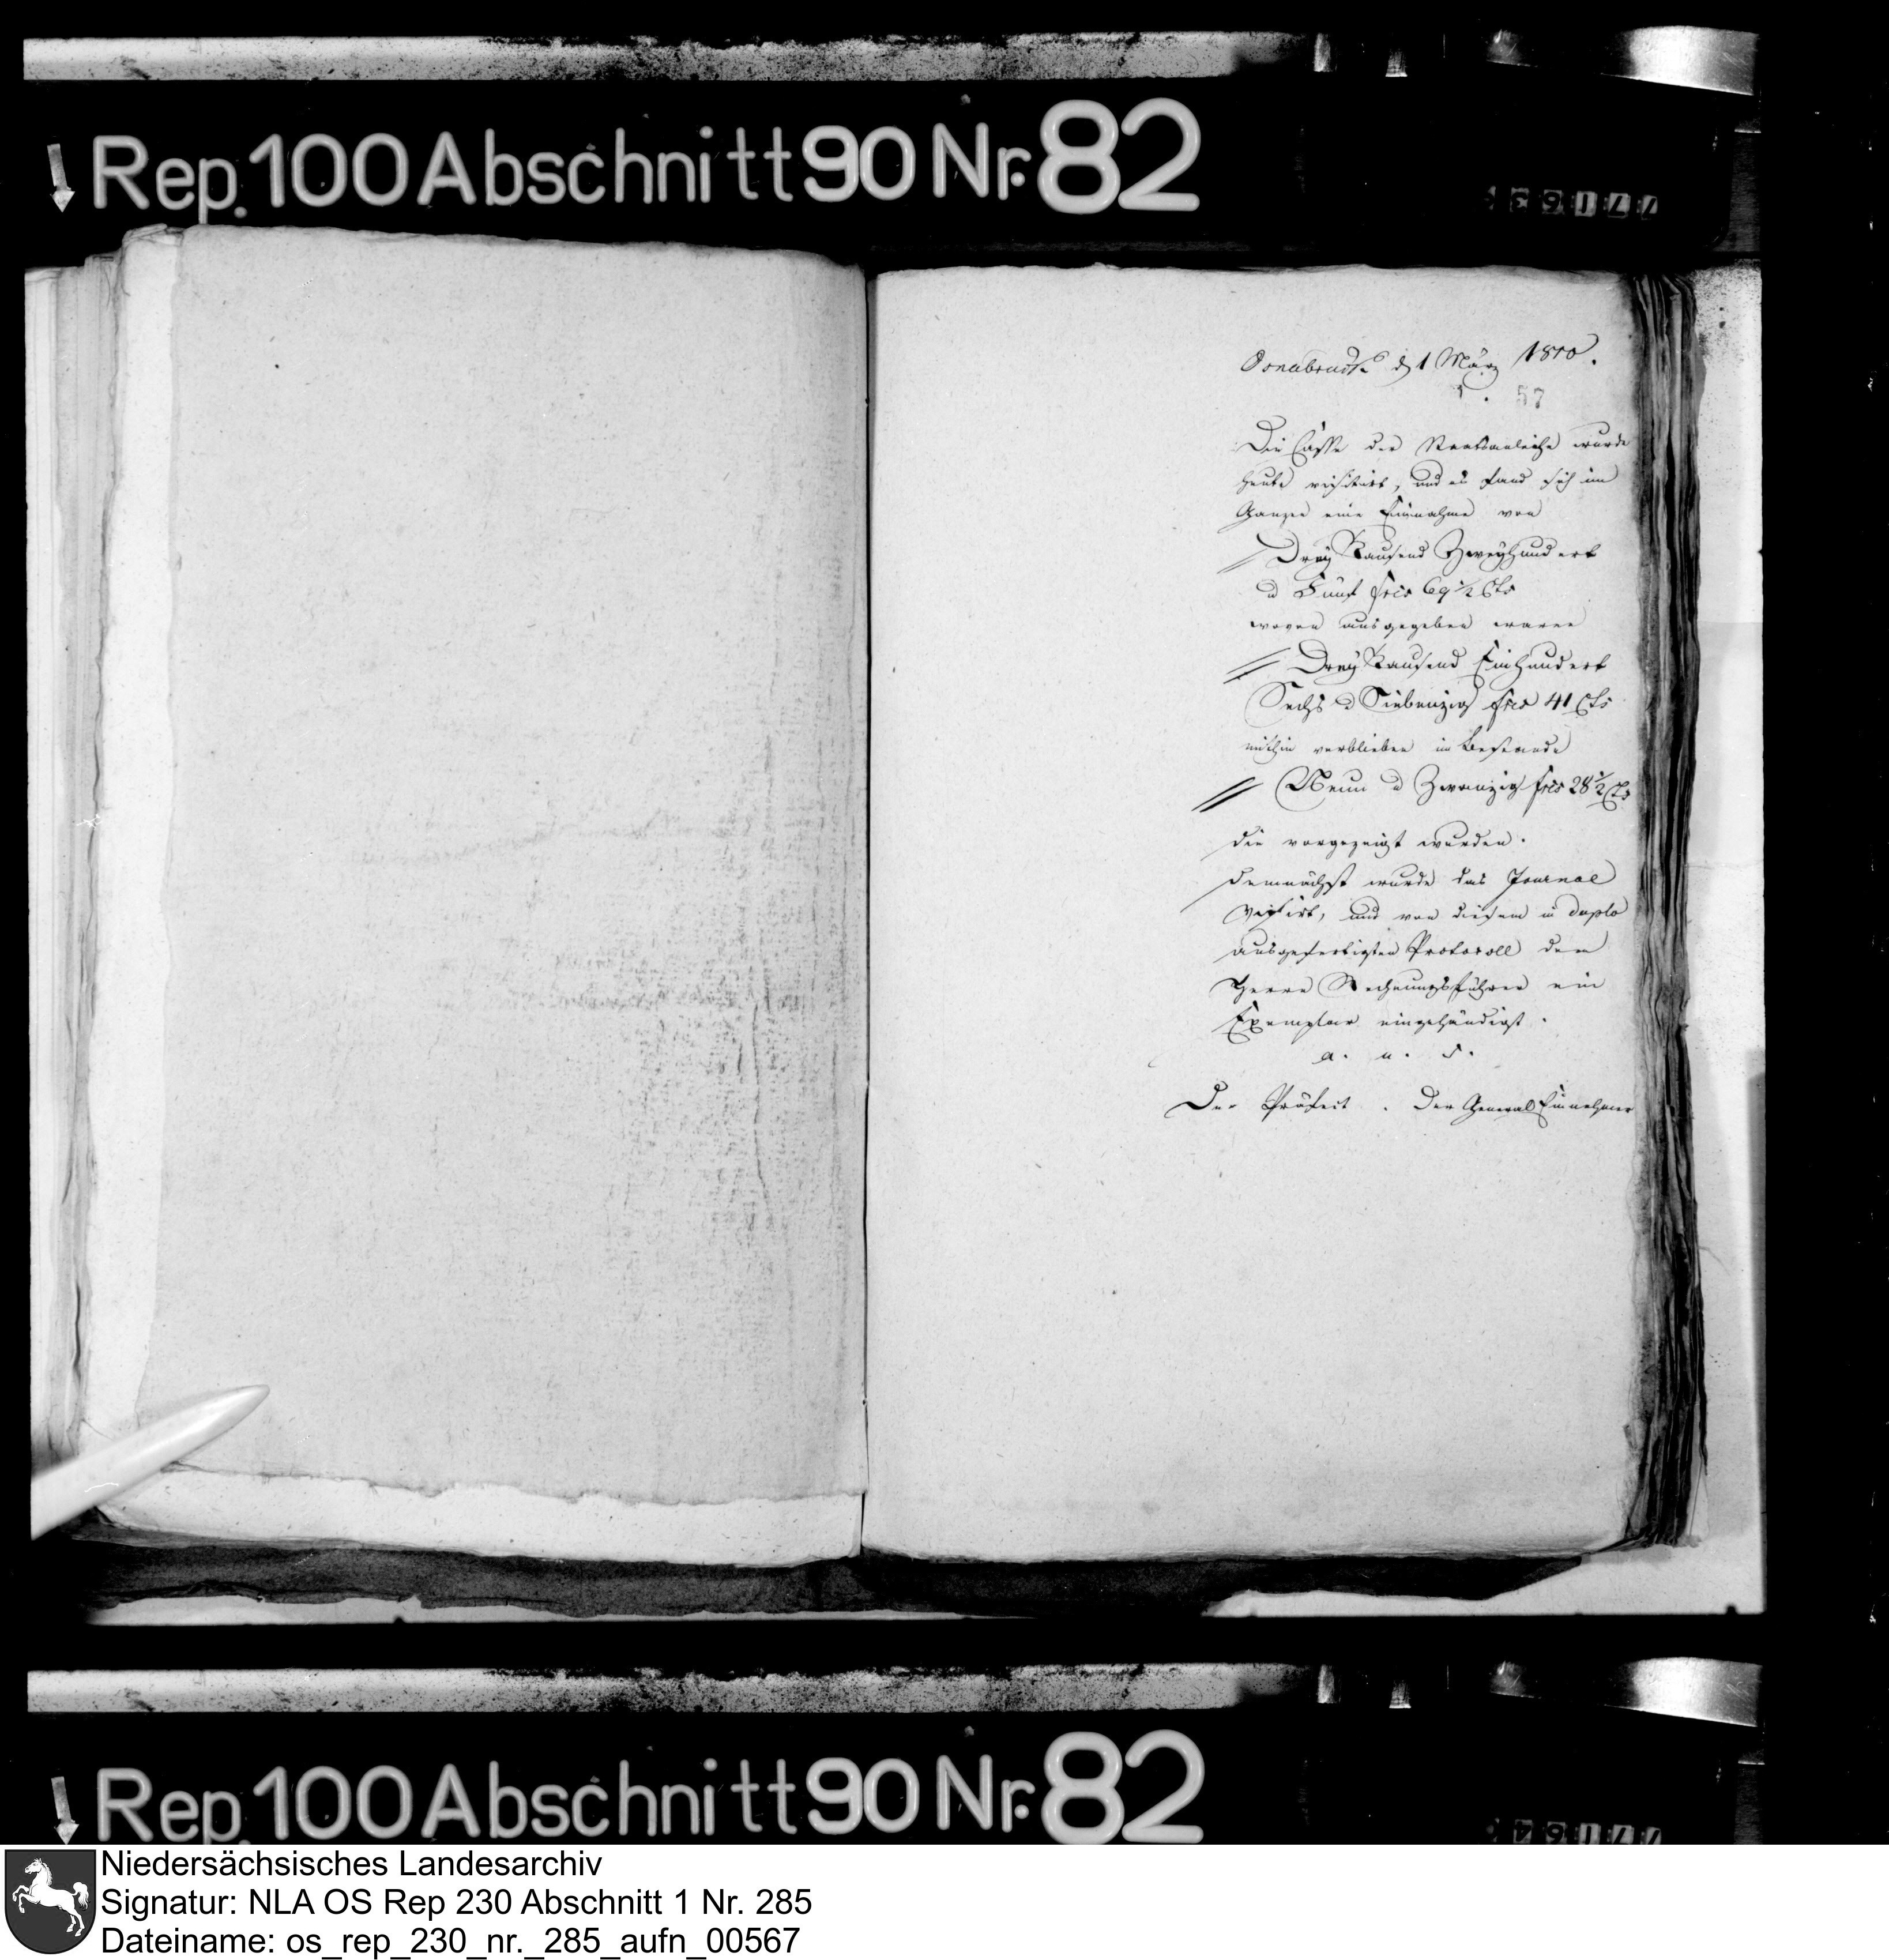 Rep. 100 Abschnitt 90 Nr. 82
Osnabruck d 1 März 1810.
57
Die Casse der Staatsanleihe wurde
heute visitirt, und es fand sich im
Ganzen eine Einnahme von
Drey Tausend Zweyhundert
u Fünf frcs 69 1/2 Cts
wovon ausgegeben waren
Drey Tausend Ein hundert
Sechs u Siebenzig frcs 41 Cts
mithin verblieben im Bestande
Neun u Zwanzig frcs 28 1/2 Cts
die vorgezeigt wurden.
demnächst wurde das Journal
und von diesem in duplo
ausgefertigten Protocoll dem
Herrn Rechnungsführer ein
Exemplar eingehändigt.
a. u. s.
Der Präfect. Der General Einnehmer
Rep. 100 Abschnitt 90 Nr. 82
Niedersächsisches Landesarchiv
Signatur: NLA OS Rep 230 Abschnitt 1 Nr. 285
Dateiname: os_rep_230_nr._285_aufn_00567